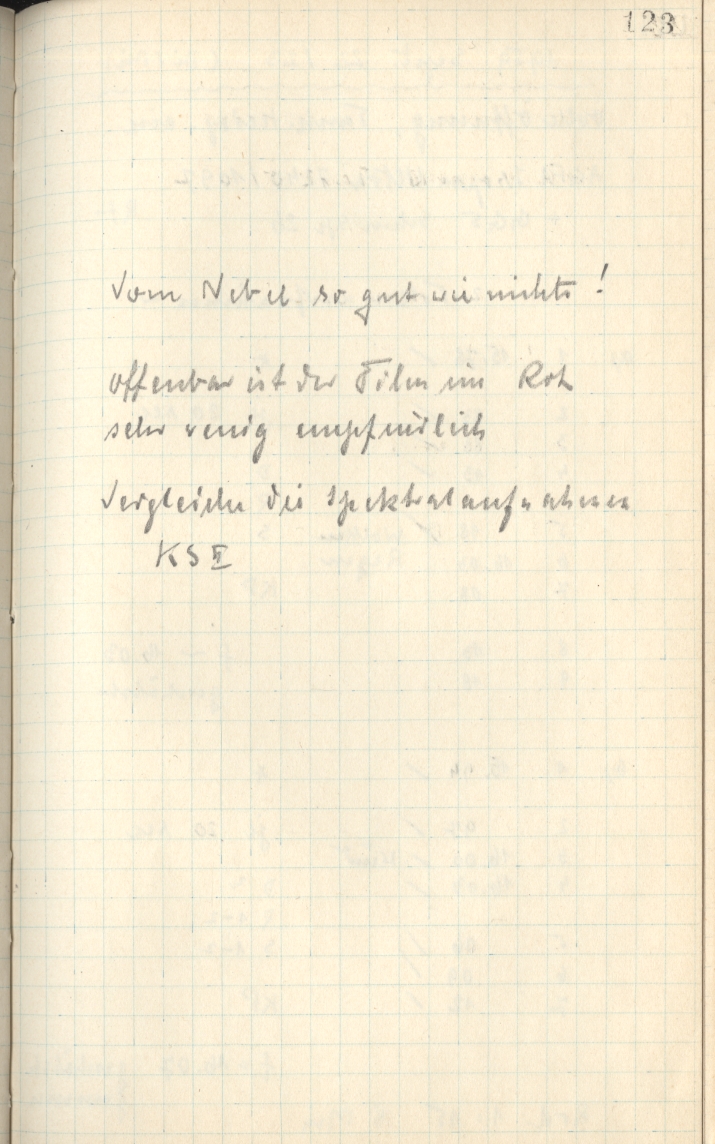 123
Vom Nebel so gut wie nichts!
offenbar ist der Film im Rot
sehr wenig empfindlich
Vergleiche die Spektralaufnahmen
KS II